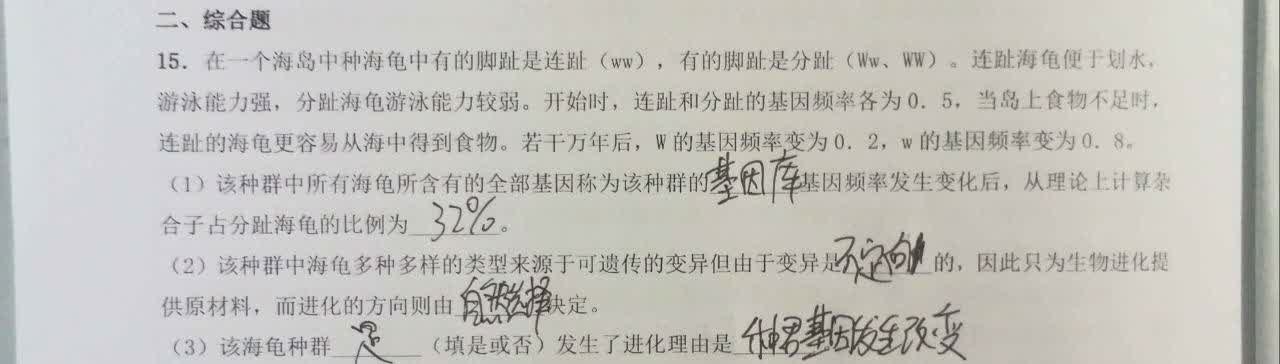 二、综合题
15. 在一个海岛中种海龟中有的脚趾是连趾（ww），有的脚趾是分趾（Ww、WW）。连趾海龟便于划水，
游泳能力强，分趾海龟游泳能力较弱。开始时，连趾和分趾的基因频率各为0．5，当岛上食物不足时，
连趾的海龟更容易从海中得到食物。若干万年后，W的基因频率变为0．2，w的基因频率变为0．8。
（1）该种群中所有海龟所含有的全部基因称为该种群的基因库基因频率发生变化后，从理论上计算杂
合子占分趾海龟的比例为 32% 。
（2）该种群中海龟多种多样的类型来源于可遗传的变异但由于变异是不定向的，因此只为生物进化提
供原材料，而进化的方向则由自然选择决定。
（3）该海龟种群 是 （填是或否）发生了进化理由是 种君基因发生改变